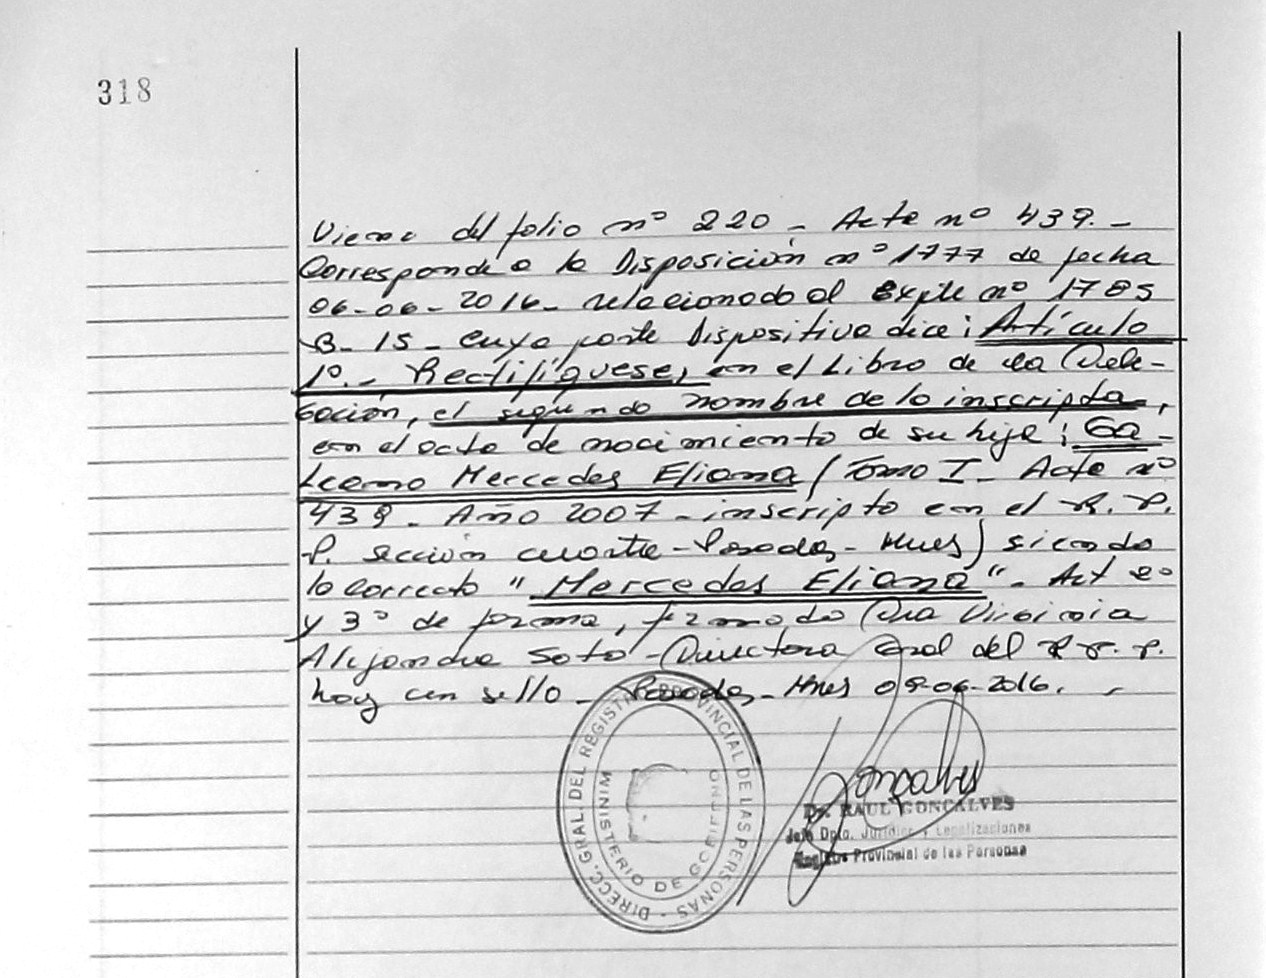 318
Viene del folio nº 220 - Acta nº 439. -
Corresponde a la Disposición nº 1777 de fecha
06-06-2016- relacionado al Expte nº 1785
B-15- cuya parte Dispositiva dice: Artículo
1º.- Rectifíquese, en el Libro de la Dele-
gación, el segundo nombre de la inscripta,
en el acta de nacimiento de su hija: Ga-
leano Mercedes Eliana (Tomo I- Acta nº
439- Año 2007-inscripta en el R. P.
P. sección cuarta-Posadas-Mnes) siendo
lo correcto "Mercedes Eliana"- Art 2º
y 3º de forma, firmado Dra Virginia
Alejandra Soto-Directora Gral del R. P. P.
hay un sello- Posadas-Mnes 09-06-2016. -
DIRECC. GRAL. DEL REGISTRO PROVINCIAL DE LAS PERSONAS -
MINISTERIO DE GOBIERNO
Gonçalves
Dr. RAUL GONCALVES
Jefe Dpto. Jurídico y Legalizaciones
Registro Provincial de las Personas